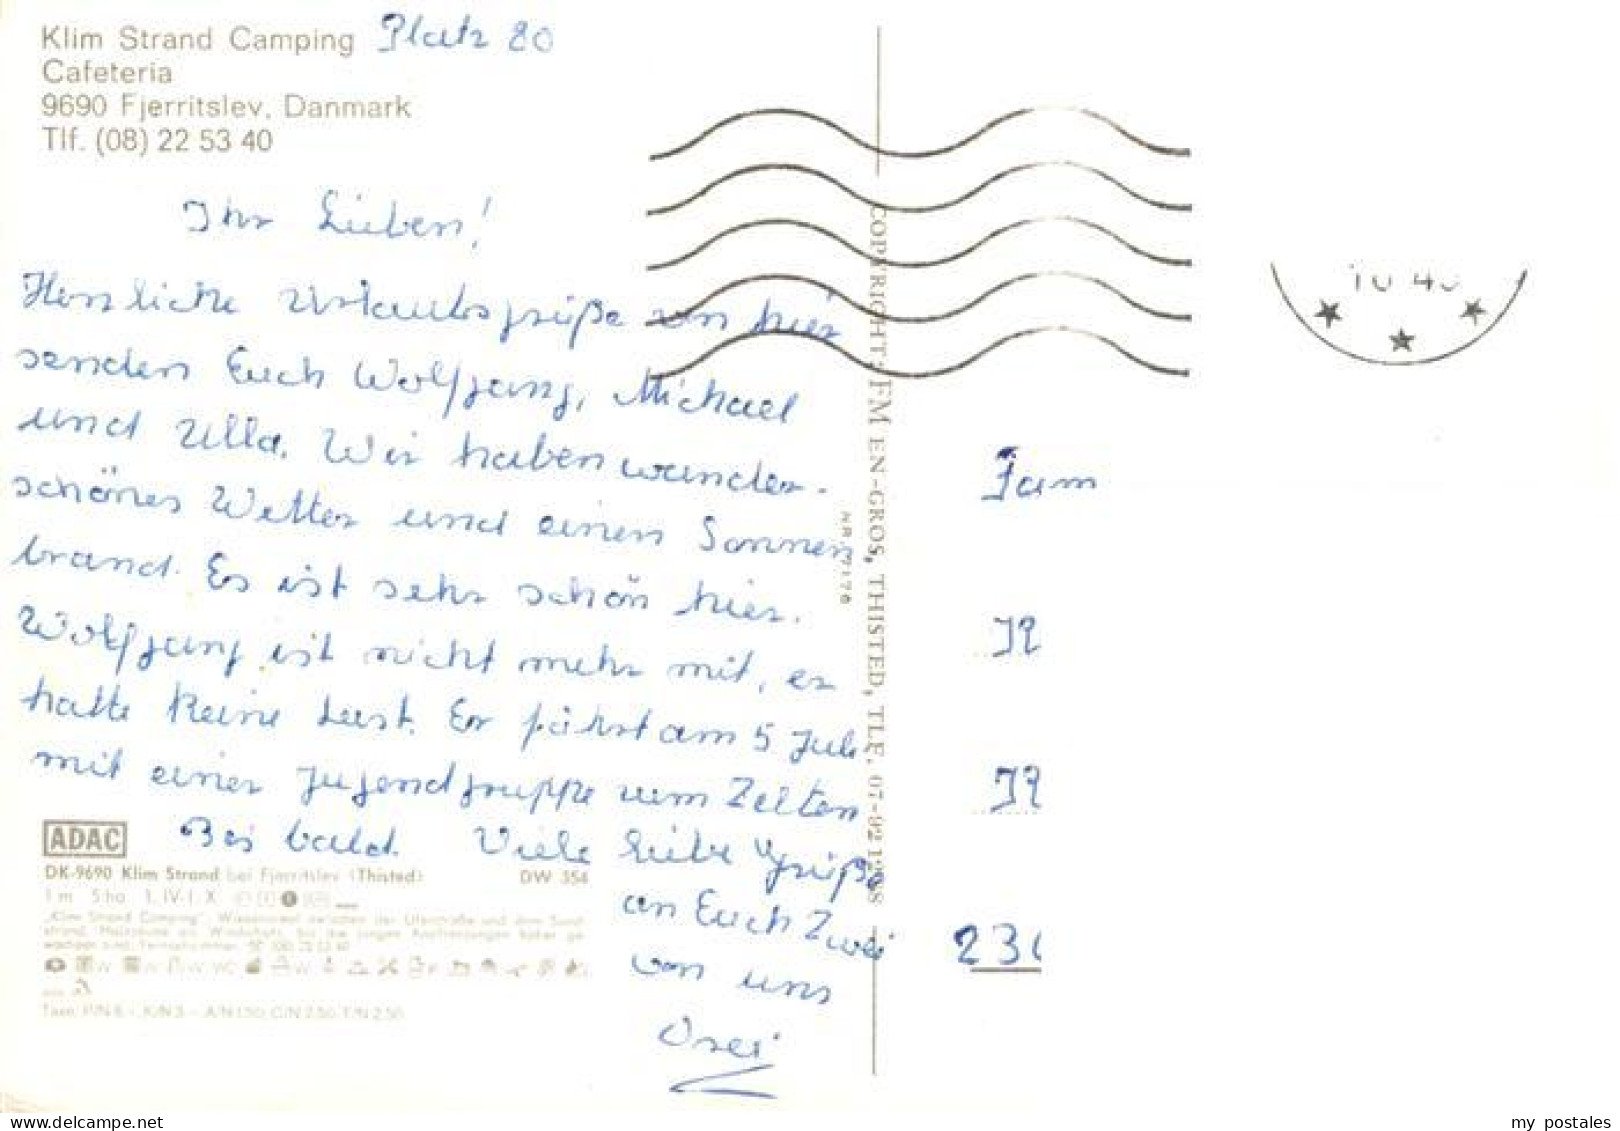 Klim Strand Camping Platz 80
Cafeteria
9690 Fjerritslev, Danmark
Tlf. (08) 22 53 40
Ihr Lieben!
Herzliche Urlaubsgrüße von hier
senden Euch Wolfgang, Michael
und Ulla. Wir haben wunder-
schönes Wetter und einen Sonnen
brand. Es ist sehr schön hier.
Wolfgang ist nicht mehr mit, er
hatte keine Lust. Er fährt am 5 Juli
mit einer Jugendgruppe zum Zelten
Bis bald. Viele liebe Grüße
an Euch Zwei
von uns
Drei
ADAC
DK-9690 Klim Strand bei Fjerritslev (Thisted) DW 354
1 m 5 ha 1. IV-1. X
Taxe: P/N 6.- K/N 3.- A/N 1.50; C/N 2.50; T/N 2.50
COPYRIGHT: FM EN-GROS, THISTED, TLF. 07-92 1988
NR. 7178
10 40
Fam
231
delcampe.net
my_postales